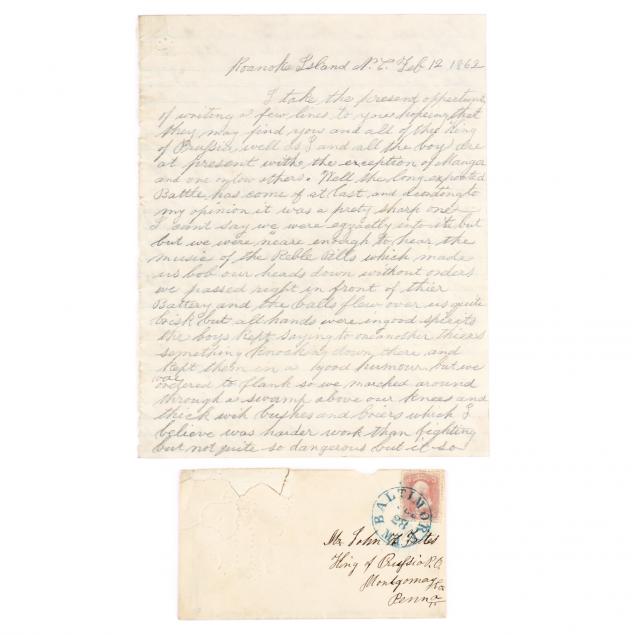 Roanoke Island N.C. Feb 12 1862
I take the present oppertunity
of writing a few lines to you hopeing that
they may find you and all of the King
of Prussia well as I and all the boys are
at present withe the exception of
and one or tow others. Well the long expected
Battle has come of at last and acording to
my opinion it was a prety sharp one
I cant say we were egzactly into it but
but we were neare enough to hear the
music of the Reble Pills which made
us bob our heads down without orders
we passed right in front of thier
Battery and the balls flew over us quite
brisk but all hands were in good spirits
the boys kept saying to one another thiers
something knocking down there and
kept them in a good humour but we
was
ordered to flank so we marched around
through a swamp above our knees and
thick with bushes and briers which I
believe was harder work than fighting
but not quite so dangerous but it so
BALTIMORE
28
Md.
Mr John
King of Prussia P.O.
Montgomery Co
Penna